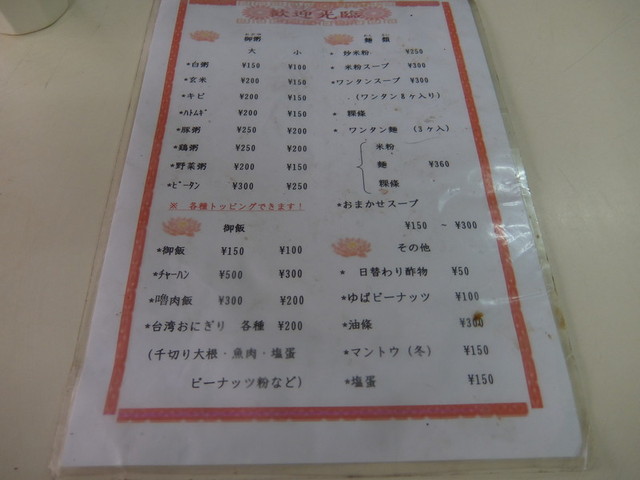 歓迎光臨
御粥
大 小
*白粥 ¥150 ¥100
*玄米 ¥200 ¥150
*キビ ¥200 ¥150
*ﾊﾄﾑｷﾞ ¥200 ¥150
*豚粥 ¥250 ¥200
*鶏粥 ¥250 ¥200
*野菜粥 ¥200 ¥150
*ﾋﾟｰﾀﾝ ¥300 ¥250
※ 各種トッピングできます!
御飯
*御飯 ¥150 ¥100
*チャーハン ¥500 ¥300
*嚕肉飯 ¥300 ¥200
*台湾おにぎり 各種 ¥200
(千切り大根・魚肉・塩蛋
ピーナッツ粉など)
麺類
* 炒米粉 ¥250
* 米粉スープ ¥300
*ワンタンスープ ¥300
(ワンタン8ヶ入り)
* 粿條
* ワンタン麺 (3ヶ入)
米粉
麺 ¥360
粿條
*おまかせスープ
¥150 ~ ¥300
その他
* 日替わり酢物 ¥50
*ゆばピーナッツ ¥100
*油條 ¥300
*マントウ(冬) ¥150
*塩蛋 ¥150